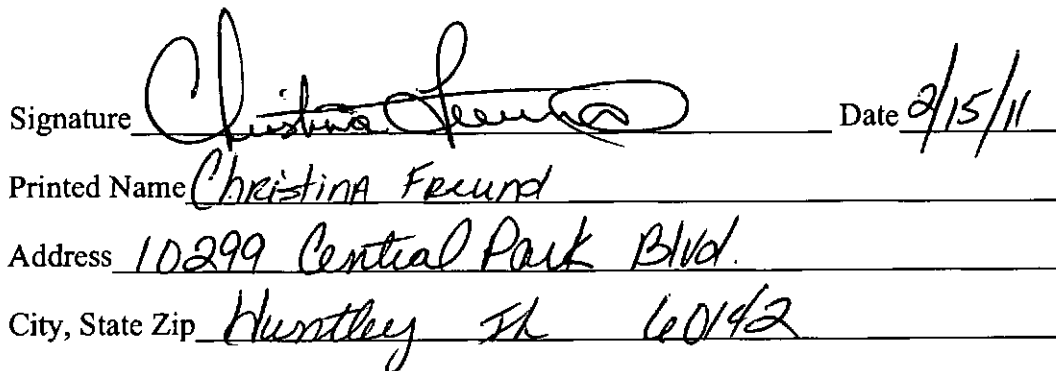 Signature Christina Freund Date 2/15/11
Printed Name Christina Freund
Address 10299 Central Park Blvd.
City, State Zip Huntley IL 60142